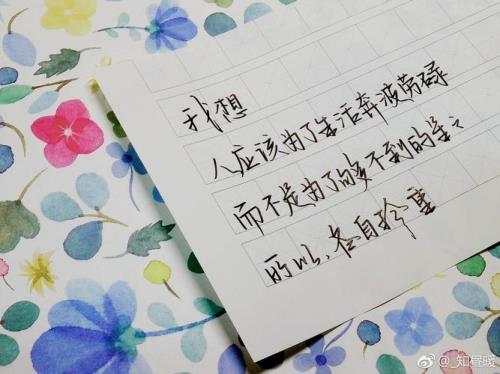 我想
人应该为了生活奔波劳碌
而不是为了够不到的美言
所以，各自珍重
@_知昼暖